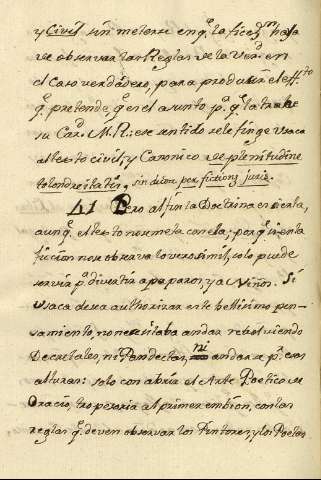 y Civil sin meterse en q.e la ficc.on haia
de observar las Reglas de la Ver.d en
el Caso verdadero, para producir el effto
q.e pretende, q.e es el asunto p.a q.e la trahe
su Car.l M. R.: ese sentido se le finge y saca
al texto civil, y Canonico de plenitudine
sin duda per fictionẽ juris.
41 Pero al fin la Doctrina es cierta,
aunq.e el texto no meta con ella; porq.e si en la
ficcion no se observa lo verosimil, solo puede
servir p.a divertir a paparos, y a Niños. Si
Usaca desea authorizar este bellisimo pen-
samiento, no necesitaba andar rebolviendo
Decretales, ni Pandectas, ni andarse p.r esas
alturas: solo con abrir el Arte Poetico de
Oracio, tropezaria al primer embion, con las
reglas q.e deven observar los Pintores, y los Poetas